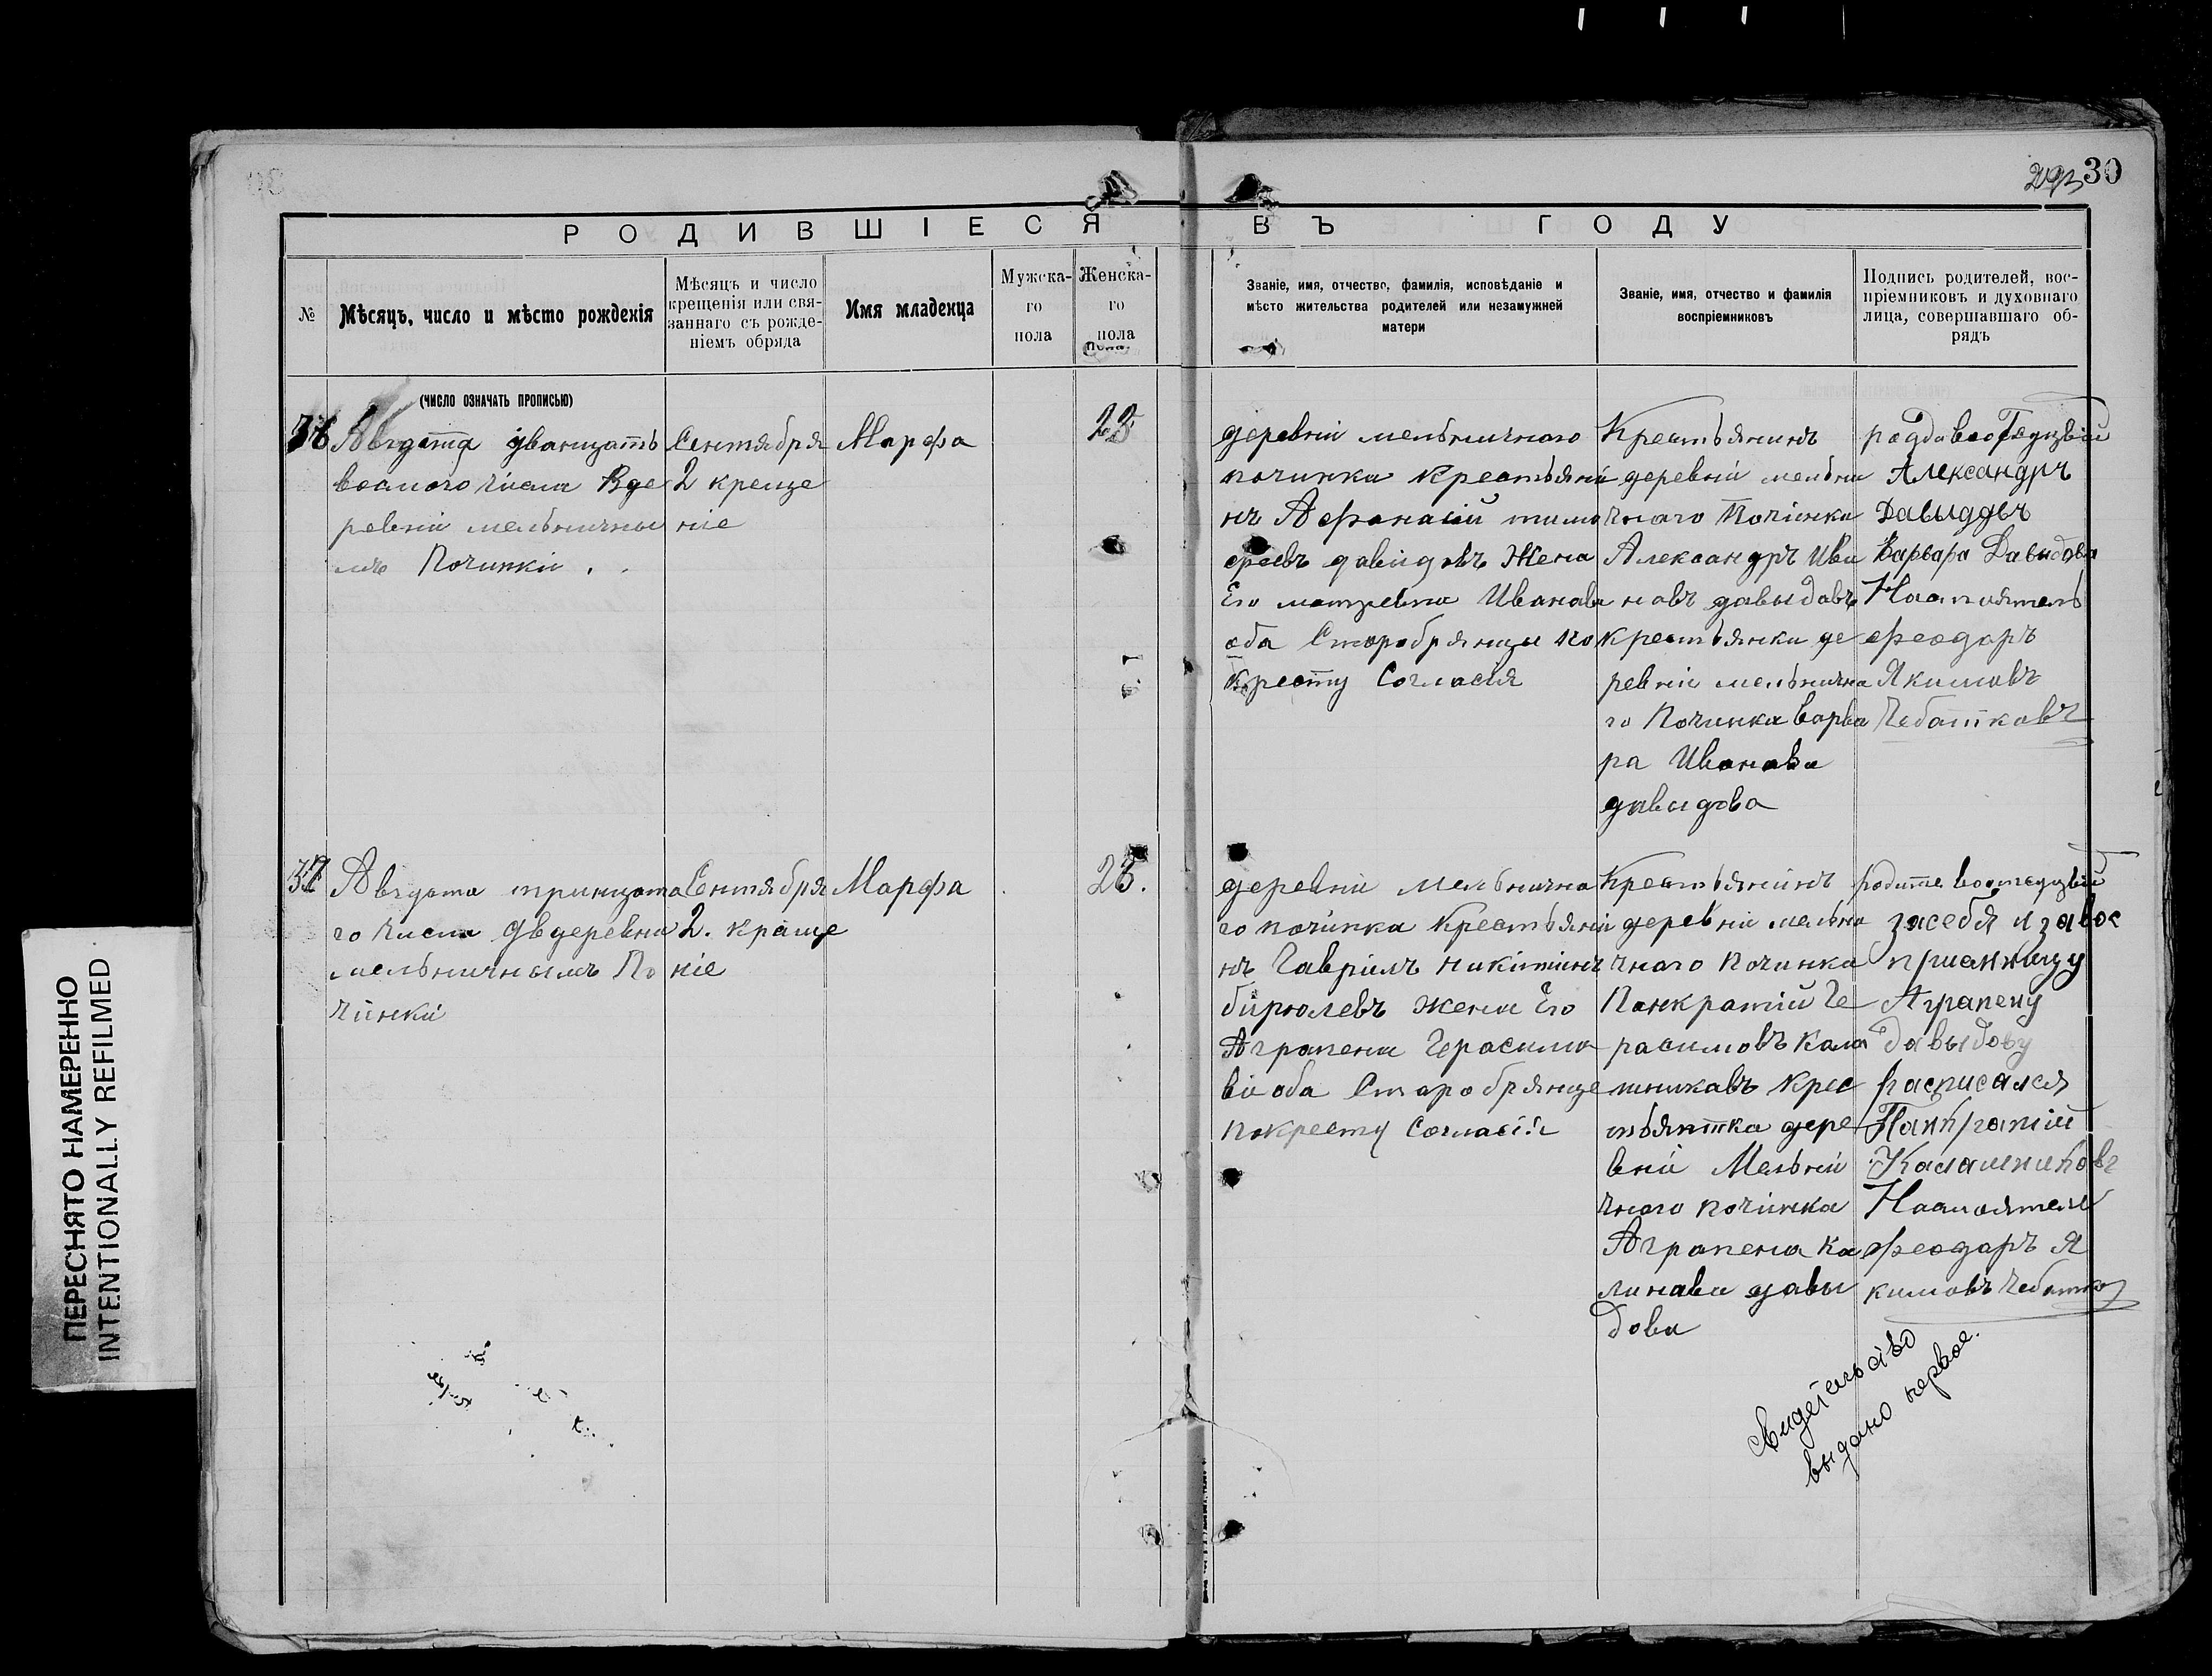 293 30
РОДИВШІЕСЯ ВЪ ГОДУ
№
Мѣсяцъ, число и мѣсто рожденія
Мѣсяцъ и число
крещенія или свя-
заннаго съ рожде-
ніемъ обряда
Имя младенца
Мужска-
го
пола
Женска-
го
пола
Званіе, имя, отчество, фамилія, исповѣданіе и
мѣсто жительства родителей или незамужней
матери
Званіе, имя, отчество и фамилія
воспріемниковъ
Подпись родителей, вос-
пріемниковъ и духовнаго
лица, совершавшаго об-
рядъ
(ЧИСЛО ОЗНАЧАТЬ ПРОПИСЬЮ)
36
Авгдста дваццать
восмого числа Вде
ревни мельничны
мъ Починки
Сентября
2 креще
ніе
Марфа
23
деревни мельничного
починка Крестьяни
нъ Афонасій тимо
фѣевъ давидовъ Жена
Его матрена Иванова
оба Старобрянцы по
кресту Согласія
Крестьянинъ
деревни мельни
чнаго Починка
Александръ Ива
новъ давыдовъ
крестьянки де
ревни мельнична
го Починка варва
ра Иванава
давыдова
Александръ
Давыдовъ
Варвара Давыдова
Настоятель
феодоръ
Якимовъ
Чебатковъ
37
Авгдста триццата
го числа двдеревни
мельничнымъ По
чинки
Сентября
2. краще
ніе
Марфа
23.
деревни Мельнична
го починка Крестьяни
нъ Гаврилъ Никитинъ
бирюлевъ жена Его
Аграпена Герасимо
ва оба Старобрянце
покресту Согласія
Крестьянинъ
деревни мельни
чнаго Починка
Панкратій Ге
расимовъ кала
шникавъ крес
тьянтка дере
вни Мельни
чнаго починка
Аграпена Ка
линава давы
дова
засебя и завос
приемницу
Аграпену
Давыдову
росписался
Панкратій
Калашниковъ
Настоятель
феодоръ Я
кимовъ Чебатко
Свидетельство
выдано первое.
ПЕРЕСНЯТО НАМЕРЕННО
INTENTIONALLY REFILMED